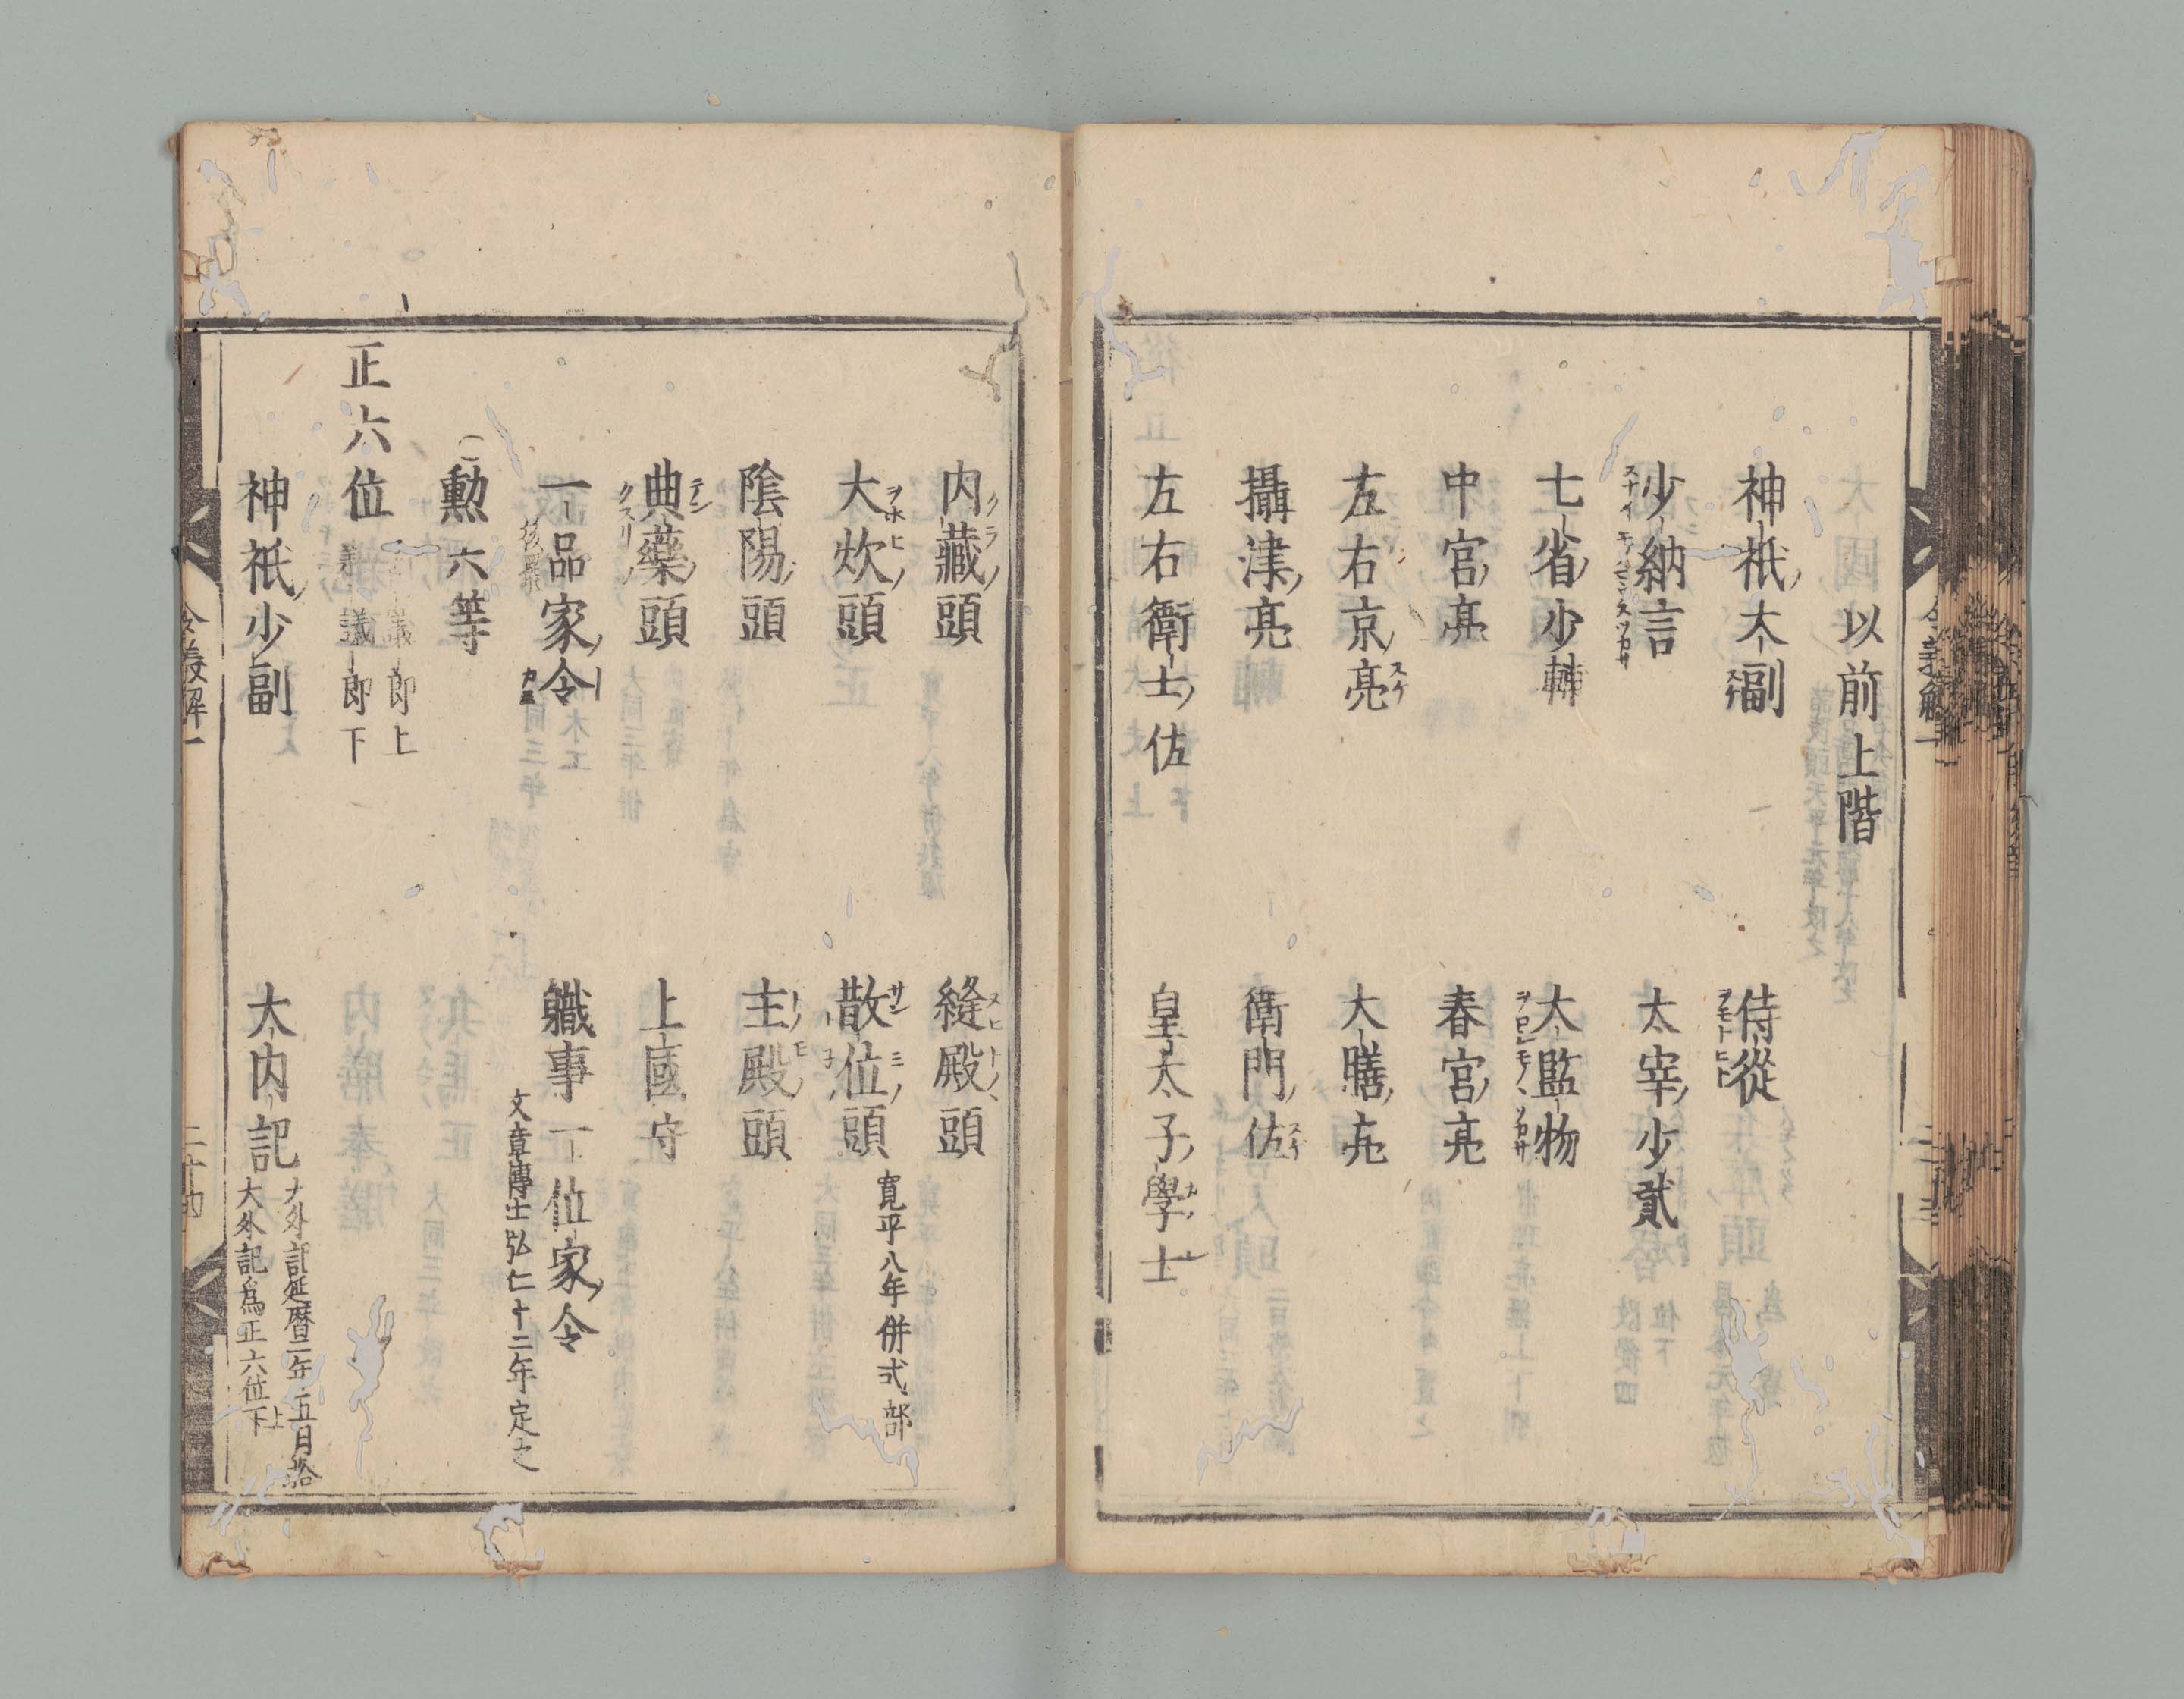 以前上階
神祇大副
侍從
少納言
太宰少貳
七省少輔
大監物
中宮亮
春宮亮
左右京亮
大膳亮
攝津亮
衛門佐
左右衛士佐
皇太子學士
内藏頭
縫殿頭
大炊頭
散位頭 寛平八年併式部
陰陽頭
主殿頭
典藥頭
上國守
一品家令
職事一位家令
文章博士弘仁十二年定之
勲六等
正六位
議郎上
議郎下
神祇少副
大内記
大外記延暦二年五月格
大外記為正六位上
下